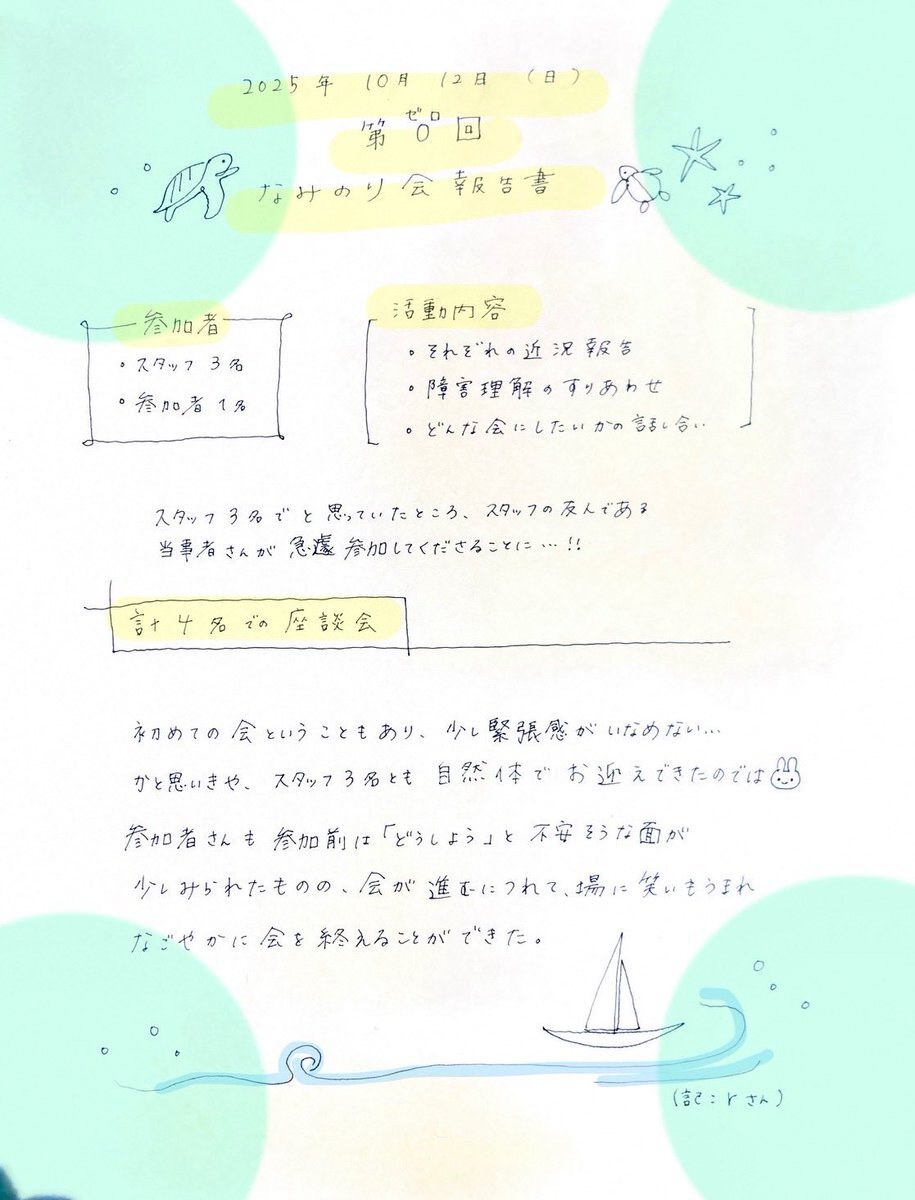 2025年 10月 12日 (日)
ゼロ
第 0 回
なみのり会報告書
参加者
・スタッフ 3名
・参加者 1名
活動内容
・それぞれの近況報告
・障害理解のすりあわせ
・どんな会にしたいかの話し合い
スタッフ3名でと思っていたところ、スタッフの友人である
当事者さんが急遽参加してくださることに…!!
計4名での座談会
初めての会ということもあり、少し緊張感がいなめない…
かと思いきや、スタッフ3名とも自然体でお迎えできたのでは
参加者さんも参加前は「どうしよう」と不安そうな面が
少しみられたものの、会が進むにつれて、場に笑いもうまれ
なごやかに会を終えることができた。
(記:rさん)